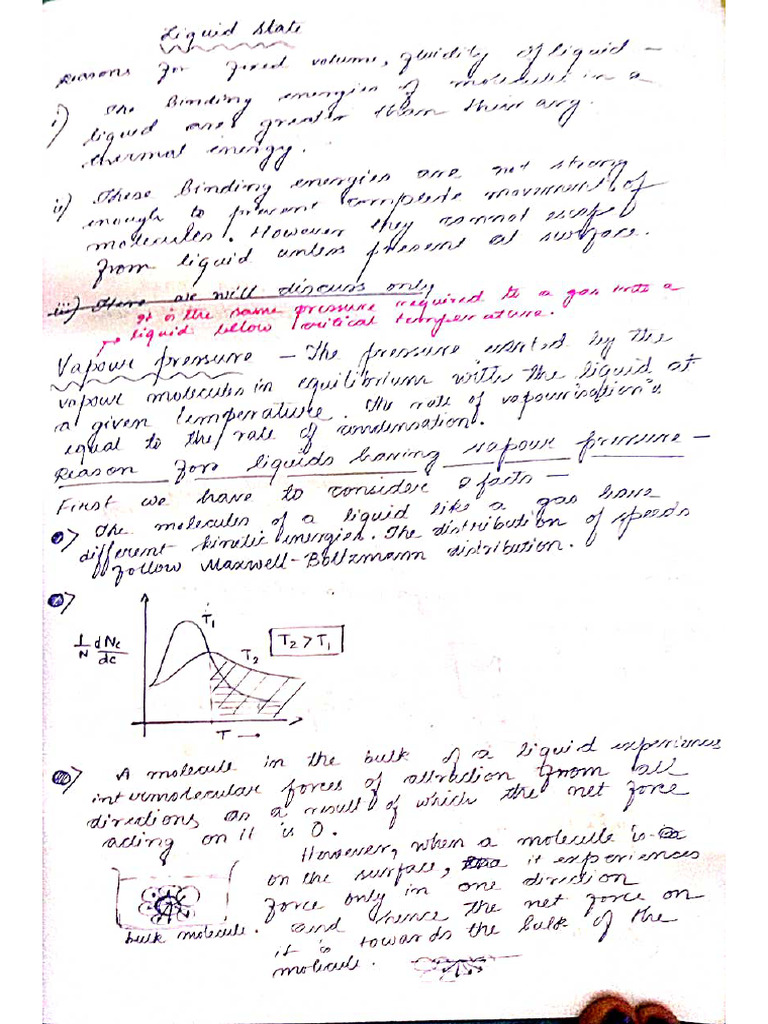 Liquid state
Reasons for fixed volume, fluidity of liquid -
i) The Binding energies of molecules in a
liquid are greater than their avg.
thermal energy.
ii) These Binding energies are not strong
enough to prevent complete movement of
molecules. However they cannot escape
from liquid unless present at surface.
iii) Here we will discuss only
It is the same pressure required to a gas into a
liquid below critical temperature.
Vapour pressure - The pressure exerted by the
vapour molecules in equilibrium with the liquid at
a given temperature. The rate of vapourisation is
equal to the rate of condensation.
Reason for liquids having vapour pressure -
First we have to consider 2 facts -
i) The molecules of a liquid like a gas have
different kinetic energies. The distribution of speeds
follow Maxwell-Boltzmann distribution.
ii)
T1
1/N dNc/dc
T2
T2 > T1
T →
iii) A molecule in the bulk of a liquid experiences
intermolecular forces of attraction from all
directions as a result of which the net force
acting on it is 0.
However, when a molecule is
on the surface, it experiences
force only in one direction
and hence the net force on
it is towards the bulk of the
molecule.
bulk molecule.